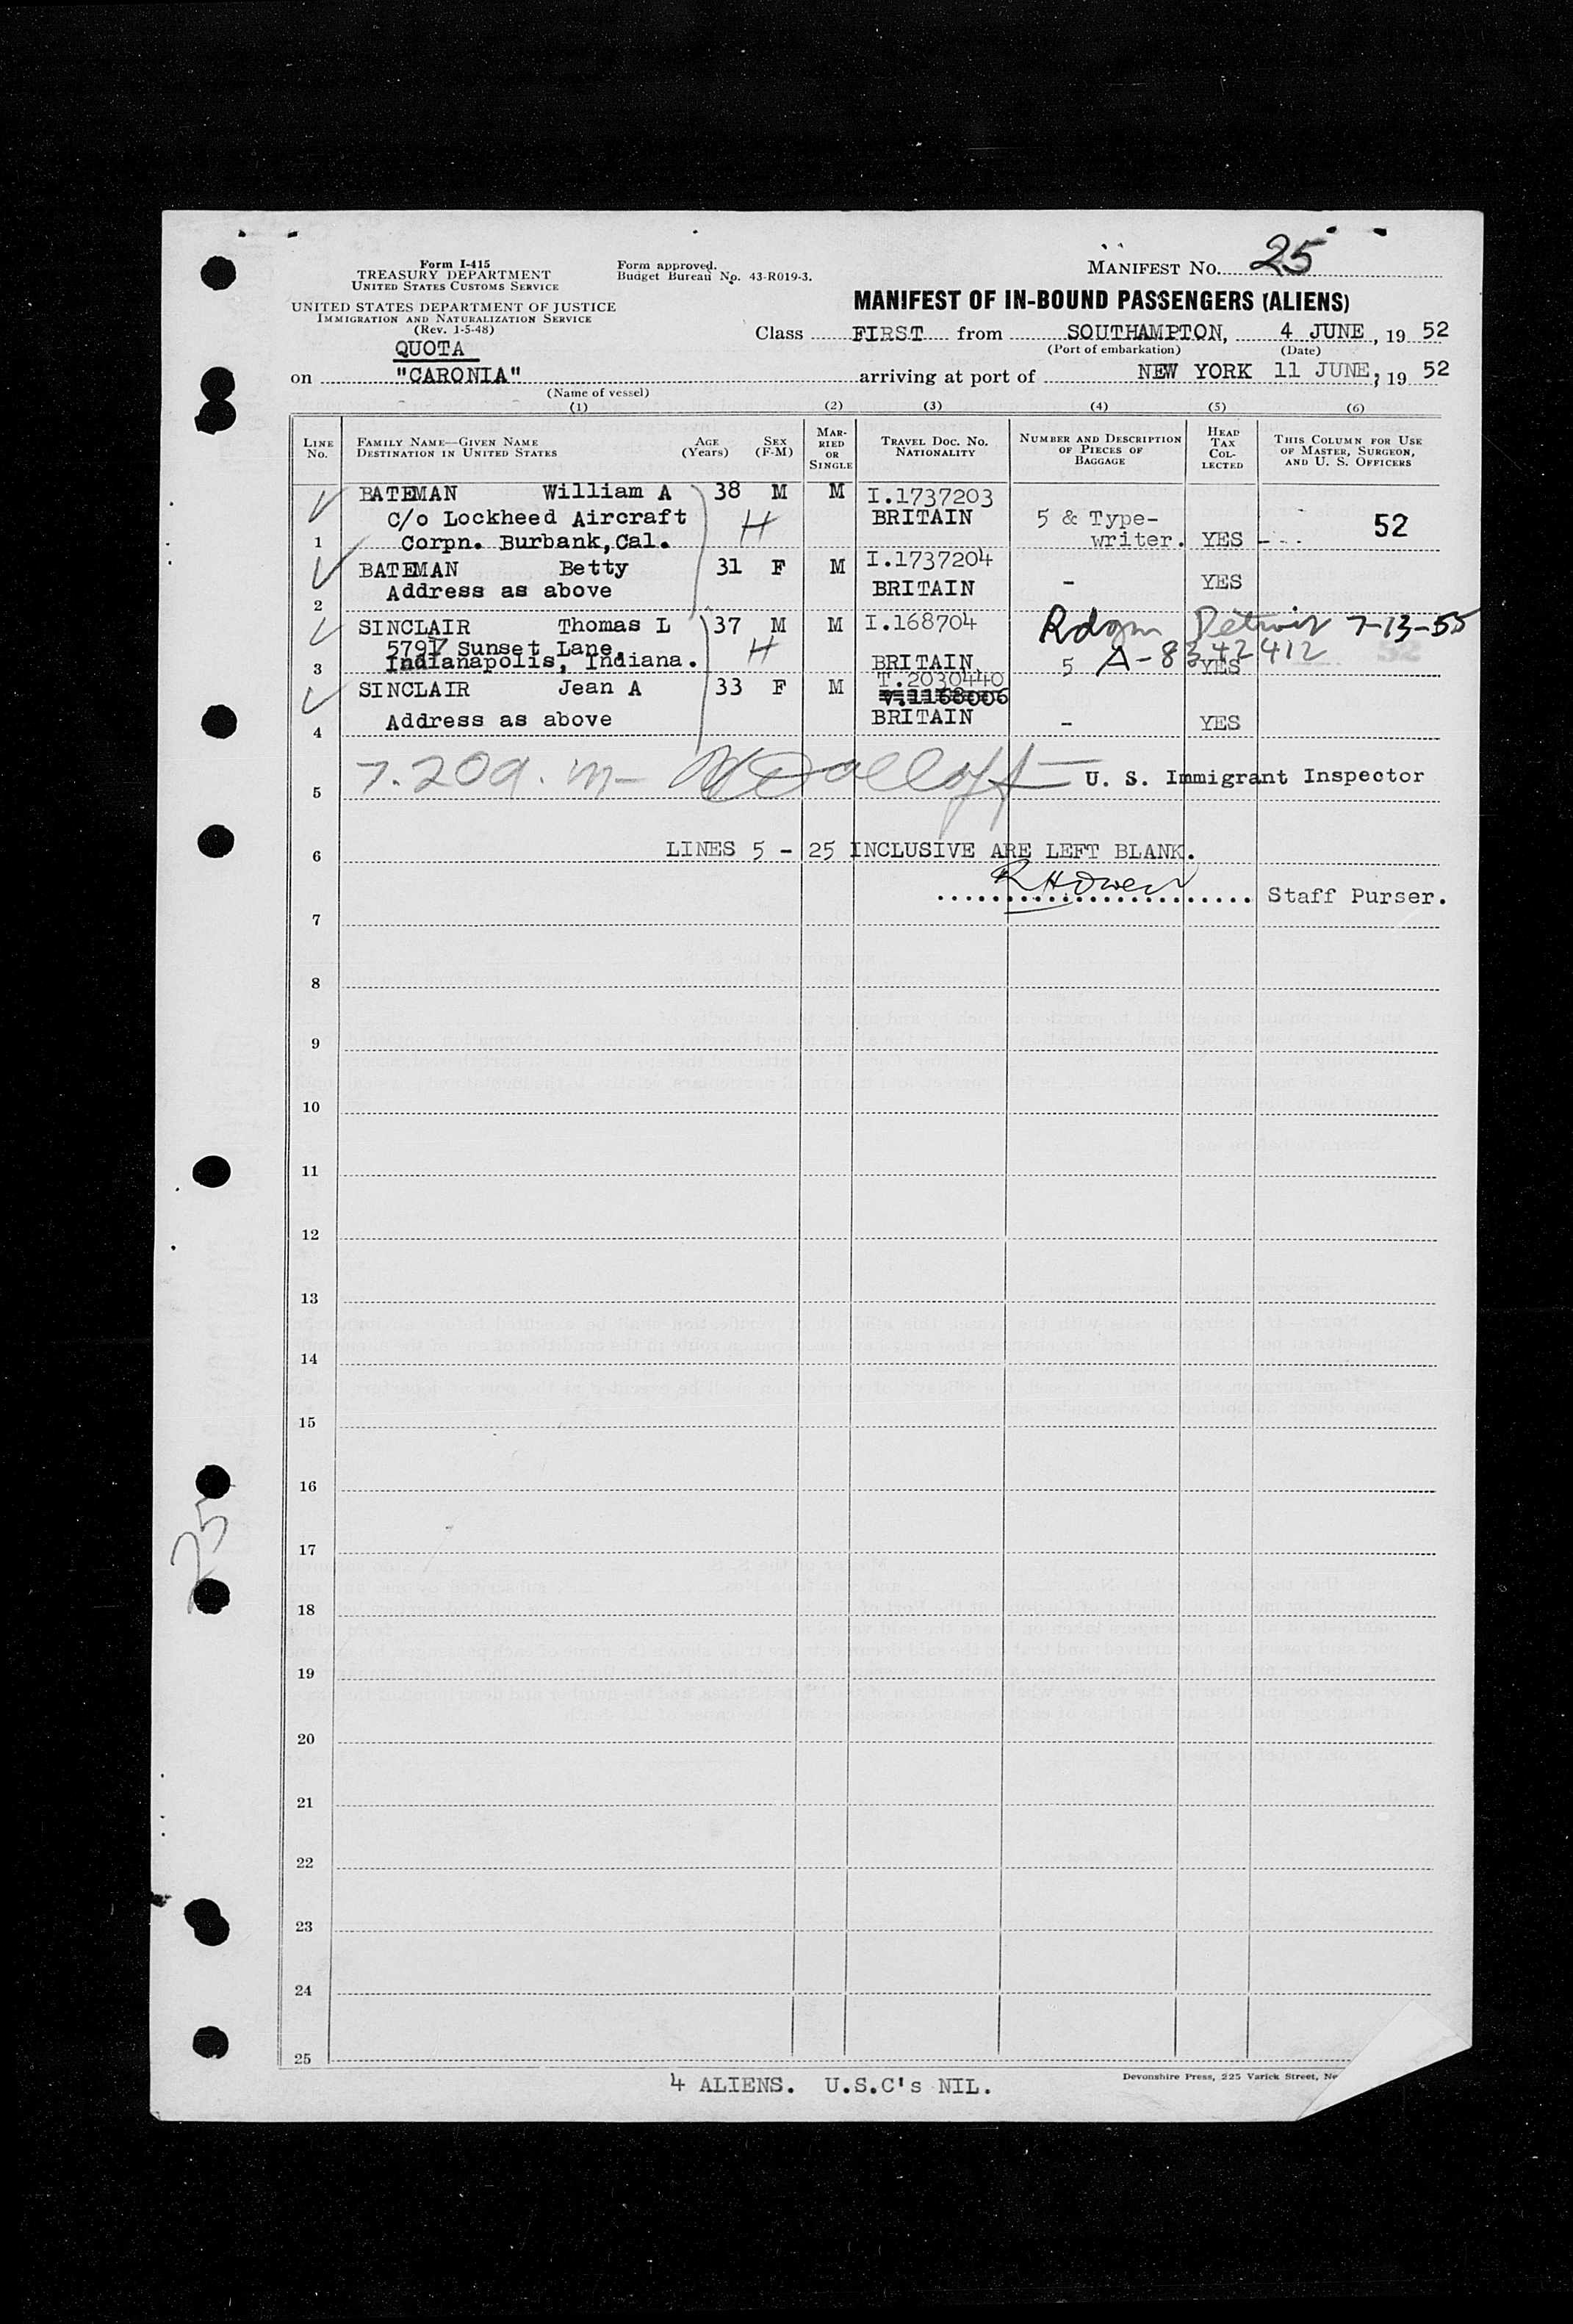 Form I-415
TREASURY DEPARTMENT
UNITED STATES CUSTOMS SERVICE
Form approved.
Budget Bureau No. 43-R019-3.
MANIFEST NO. 25
UNITED STATES DEPARTMENT OF JUSTICE
IMMIGRATION AND NATURALIZATION SERVICE
(Rev. 1-5-48)
MANIFEST OF IN-BOUND PASSENGERS (ALIENS)
Class FIRST from SOUTHAMPTON, 4 JUNE, 19 52
(Port of embarkation) (Date)
QUOTA
on "CARONIA" arriving at port of NEW YORK 11 JUNE, 19 52
(Name of vessel)
(1) (2) (3) (4) (5) (6)
LINE NO.
FAMILY NAME—GIVEN NAME
DESTINATION IN UNITED STATES
AGE (Years)
SEX (F-M)
MARRIED OR SINGLE
TRAVEL DOC. NO.
NATIONALITY
NUMBER AND DESCRIPTION OF PIECES OF BAGGAGE
HEAD TAX COLLECTED
THIS COLUMN FOR USE OF MASTER, SURGEON, AND U. S. OFFICERS
BATEMAN William A 38 M M I.1737203
C/o Lockheed Aircraft H BRITAIN 5 & Type- 52
1 Corpn. Burbank, Cal. writer. YES
BATEMAN Betty 31 F M I.1737204
Address as above BRITAIN - YES
2
SINCLAIR Thomas L 37 M M I.168704 Detroit 7-13-55
5797 Sunset Lane, H
3 Indianapolis, Indiana. BRITAIN 5 A-8342412 YES 52
SINCLAIR Jean A 33 F M T.2030440
V.1168006
4 Address as above BRITAIN - YES
5 7.20a.m- U. S. Immigrant Inspector
6 LINES 5 - 25 INCLUSIVE ARE LEFT BLANK.
R H Owen Staff Purser.
7
8
9
10
11
12
13
14
15
16
17
25
18
19
20
21
22
23
24
25
4 ALIENS. U.S.C's NIL.
Devonshire Press, 225 Varick Street,